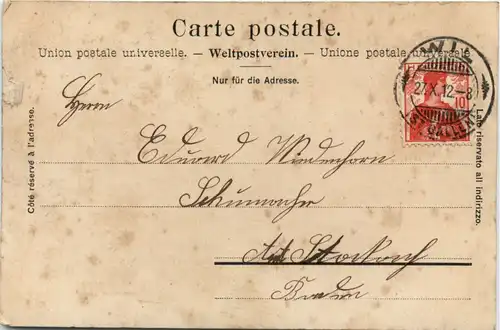 Carte postale.
Union postale universelle. — Weltpostverein. — Unione postale universale
Nur für die Adresse.
WIL
27.X.12.–8
(ST. GALLEN)
10
Herrn
Eduard Wiedenhorn
Schumacher
Amt Stockach
Baden
Côté réservé à l'adresse.
Lato riservato all' indirizzo.